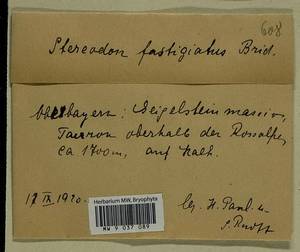 608
Stereodon fastigiatus Brid.
Oberbayern: Geigelsteinmassiv,
oberhalb der Rossalpe,
ca 1700m, auf Kalk.
17 IX 1920.
lg. H. Paul u.
Herbarium MW, Bryophyta
MW 9 037 089